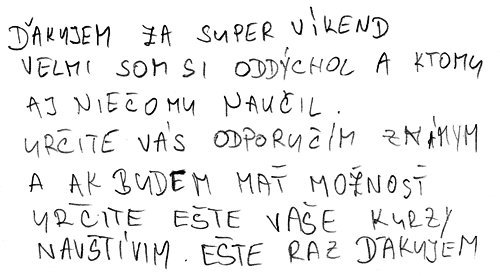 ĎAKUJEM ZA SUPER VÍKEND
VEĽMI SOM SI ODDÝCHOL A KTOMU
AJ NIEČOMU NAUČIL.
URČITE VÁS ODPORUČÍM ZNÁMYM
A AK BUDEM MAŤ MOŽNOSŤ
URČITE EŠTE VAŠE KURZY
NAVŠTÍVIM. EŠTE RAZ ĎAKUJEM